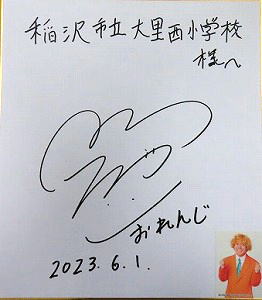 稲沢市立大里西小学校
様へ
おれんじ
2023.6.1.